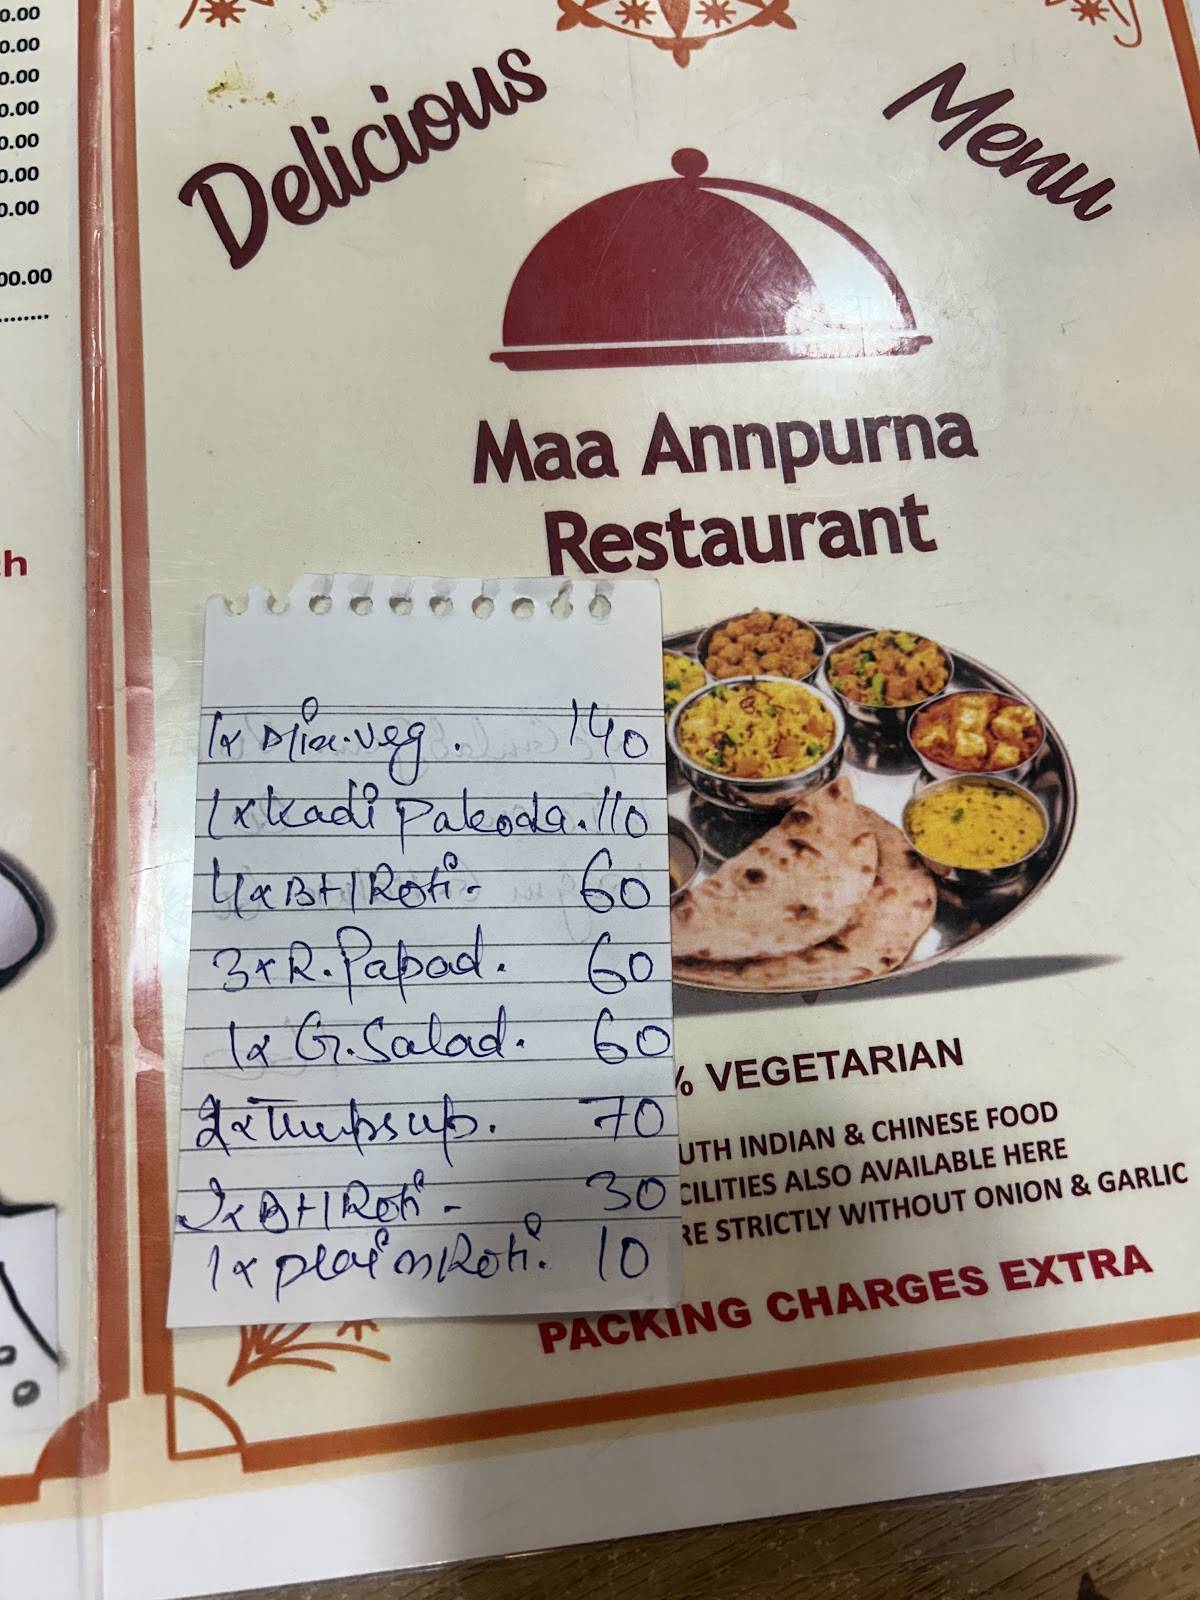 0.00
0.00
0.00
0.00
0.00
0.00
0.00
00.00
........
h
Delicious Menu
Maa Annpurna
Restaurant
1x Mix.veg. 140
1x Kadi Pakoda. 110
4x B+1Roti- 60
3x R.Papad. 60
1x G.Salad. 60
2x Thupsup. 70
2x B+1Roti- 30
1x plain Roti. 10
% VEGETARIAN
UTH INDIAN & CHINESE FOOD
CILITIES ALSO AVAILABLE HERE
RE STRICTLY WITHOUT ONION & GARLIC
PACKING CHARGES EXTRA